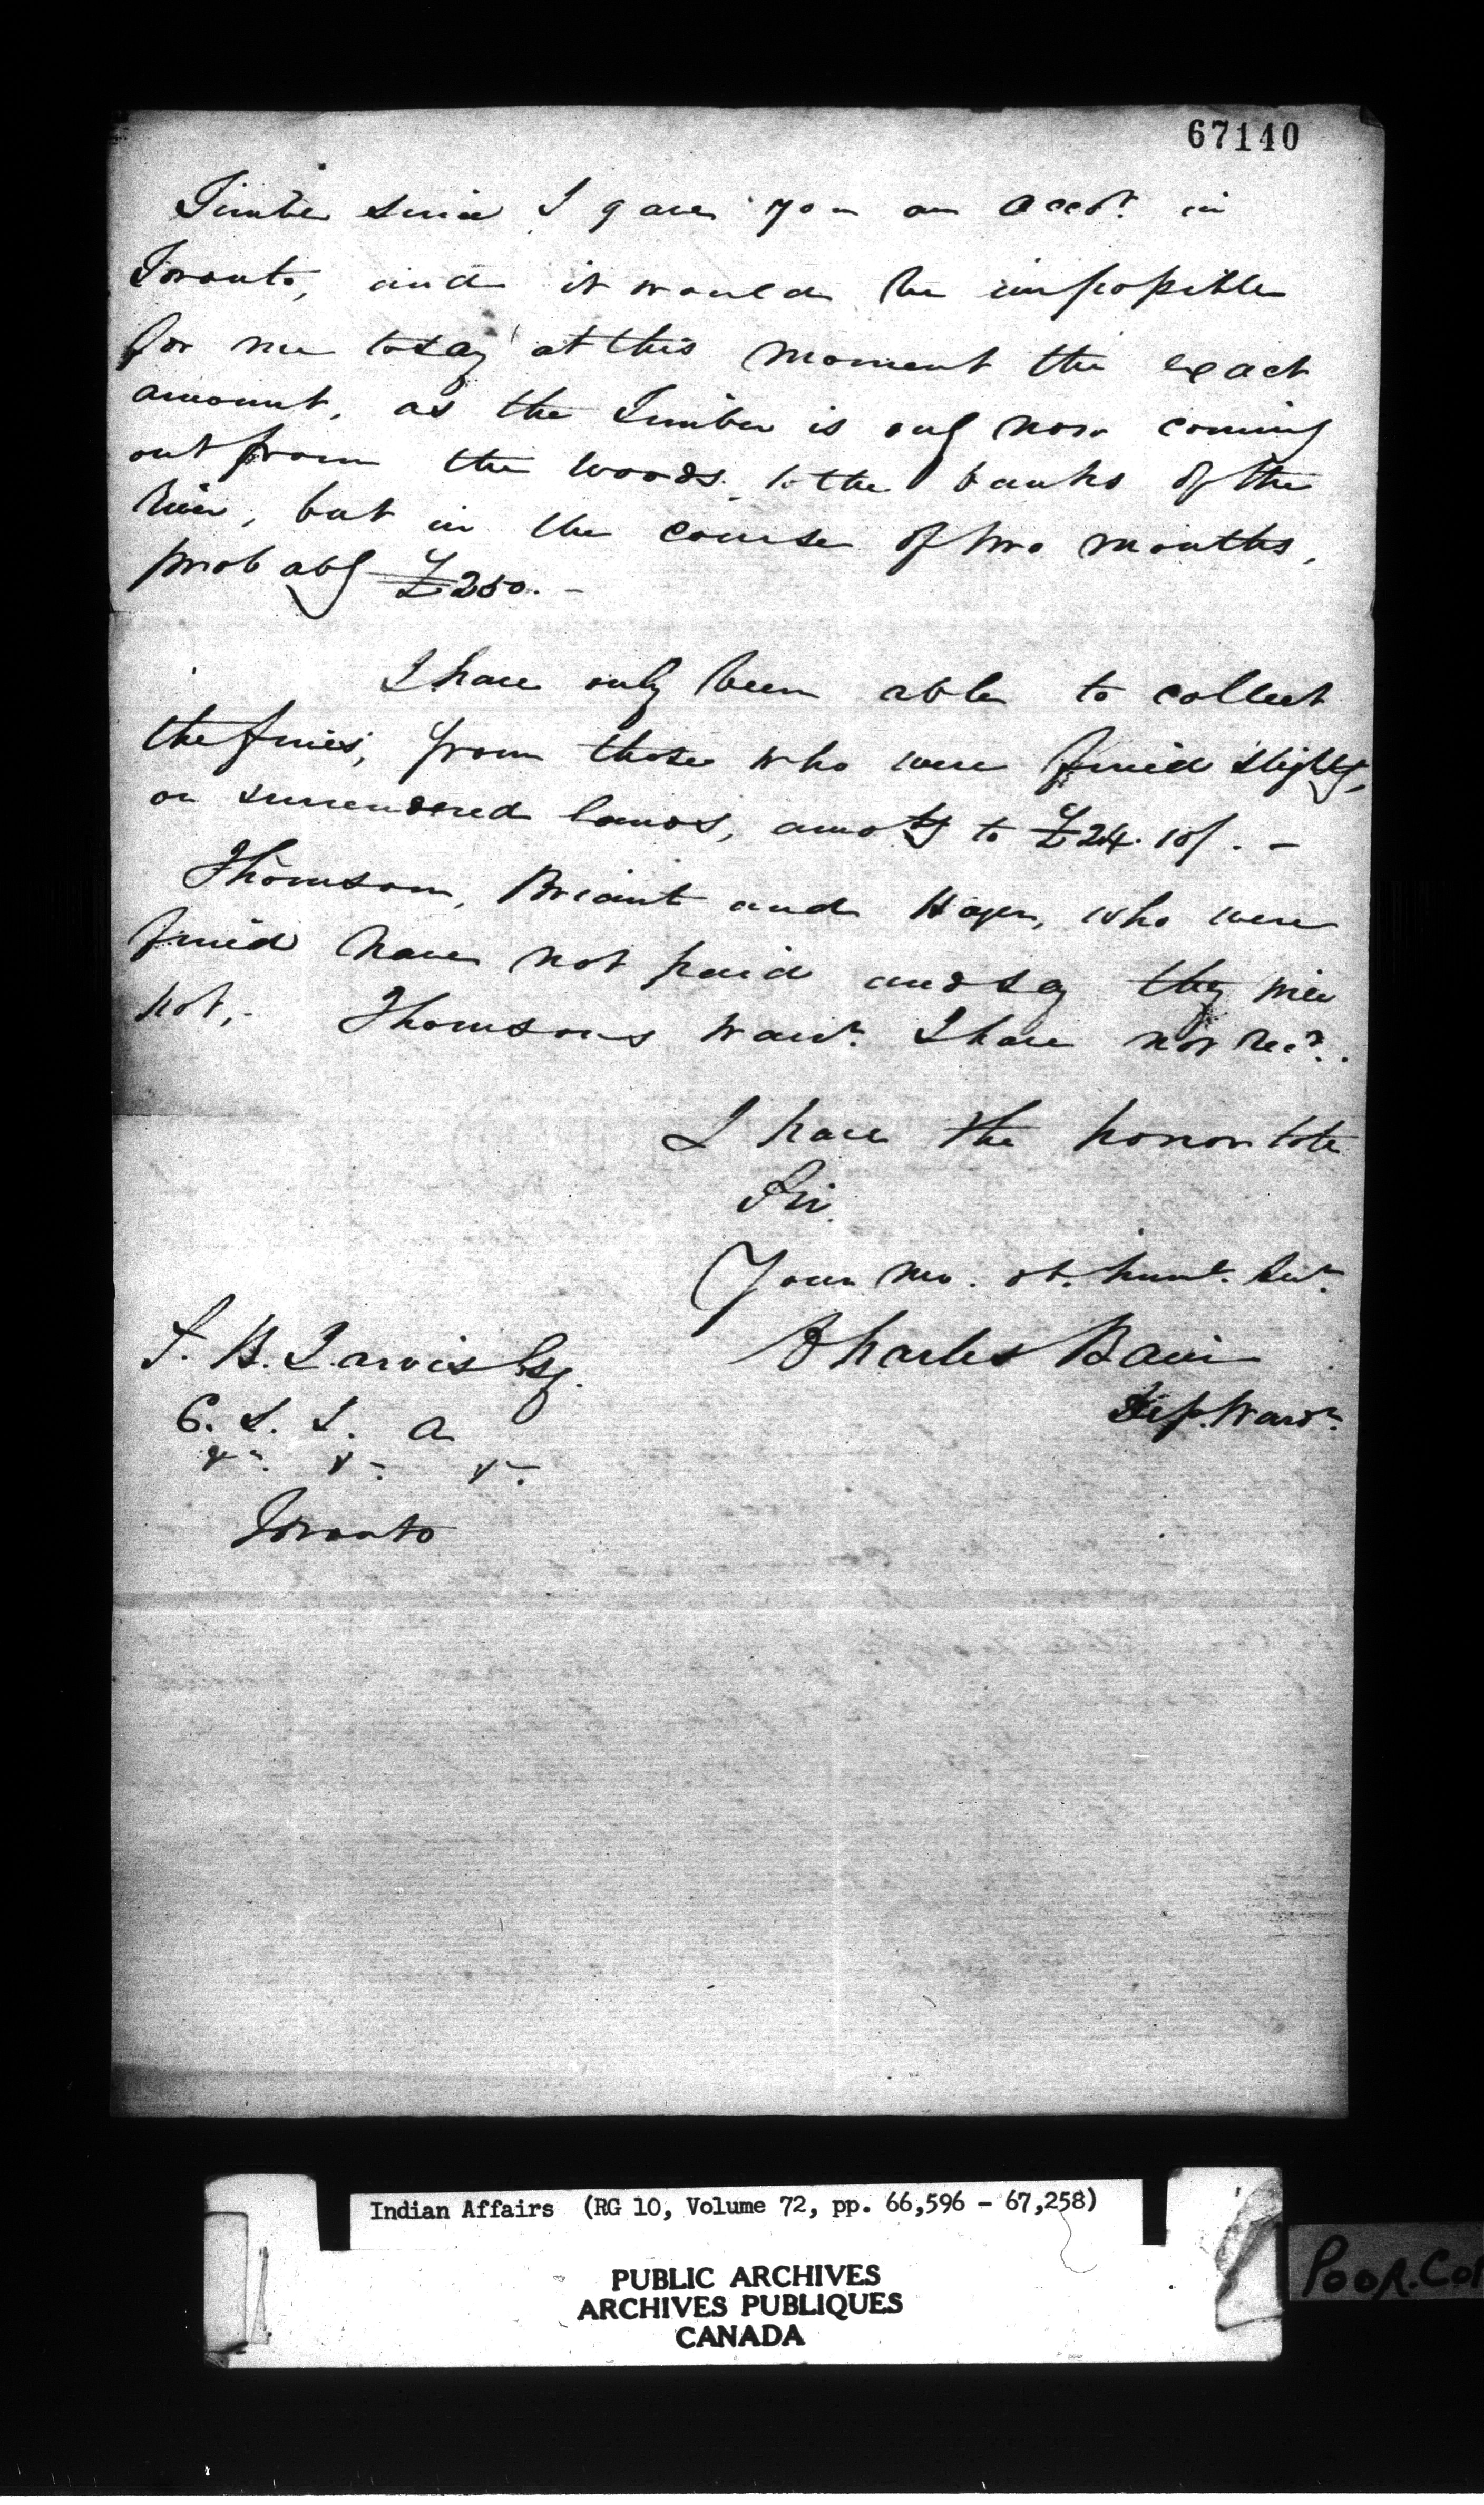 67140
Timber since I gave you an Accot. in
Toronto, and it would be impossible
for me to say at this moment the exact
amount, as the Timber is only now coming
out from the woods to the banks of the
River, but in the course of two months,
probably £250. -
I have only been able to collect
the fines, from those who were fined slightly,
on surrendered lands, amotg to £24. 10/. -
Thomson, Briant and Hager, who were
fined have not paid and say they will
not, - Thomsons Warrt. I have not recd.
I have the honor to be
Sir
Your Mo. ob. huml. Sert.
Charles Bain
Dep. Wardn.
S. B. Jarvis Esq.
C. S. I. A
&c. &c. &c.
Toronto
Indian Affairs (RG 10, Volume 72, pp. 66,596 - 67,258)
PUBLIC ARCHIVES
ARCHIVES PUBLIQUES
CANADA
Poor.Co